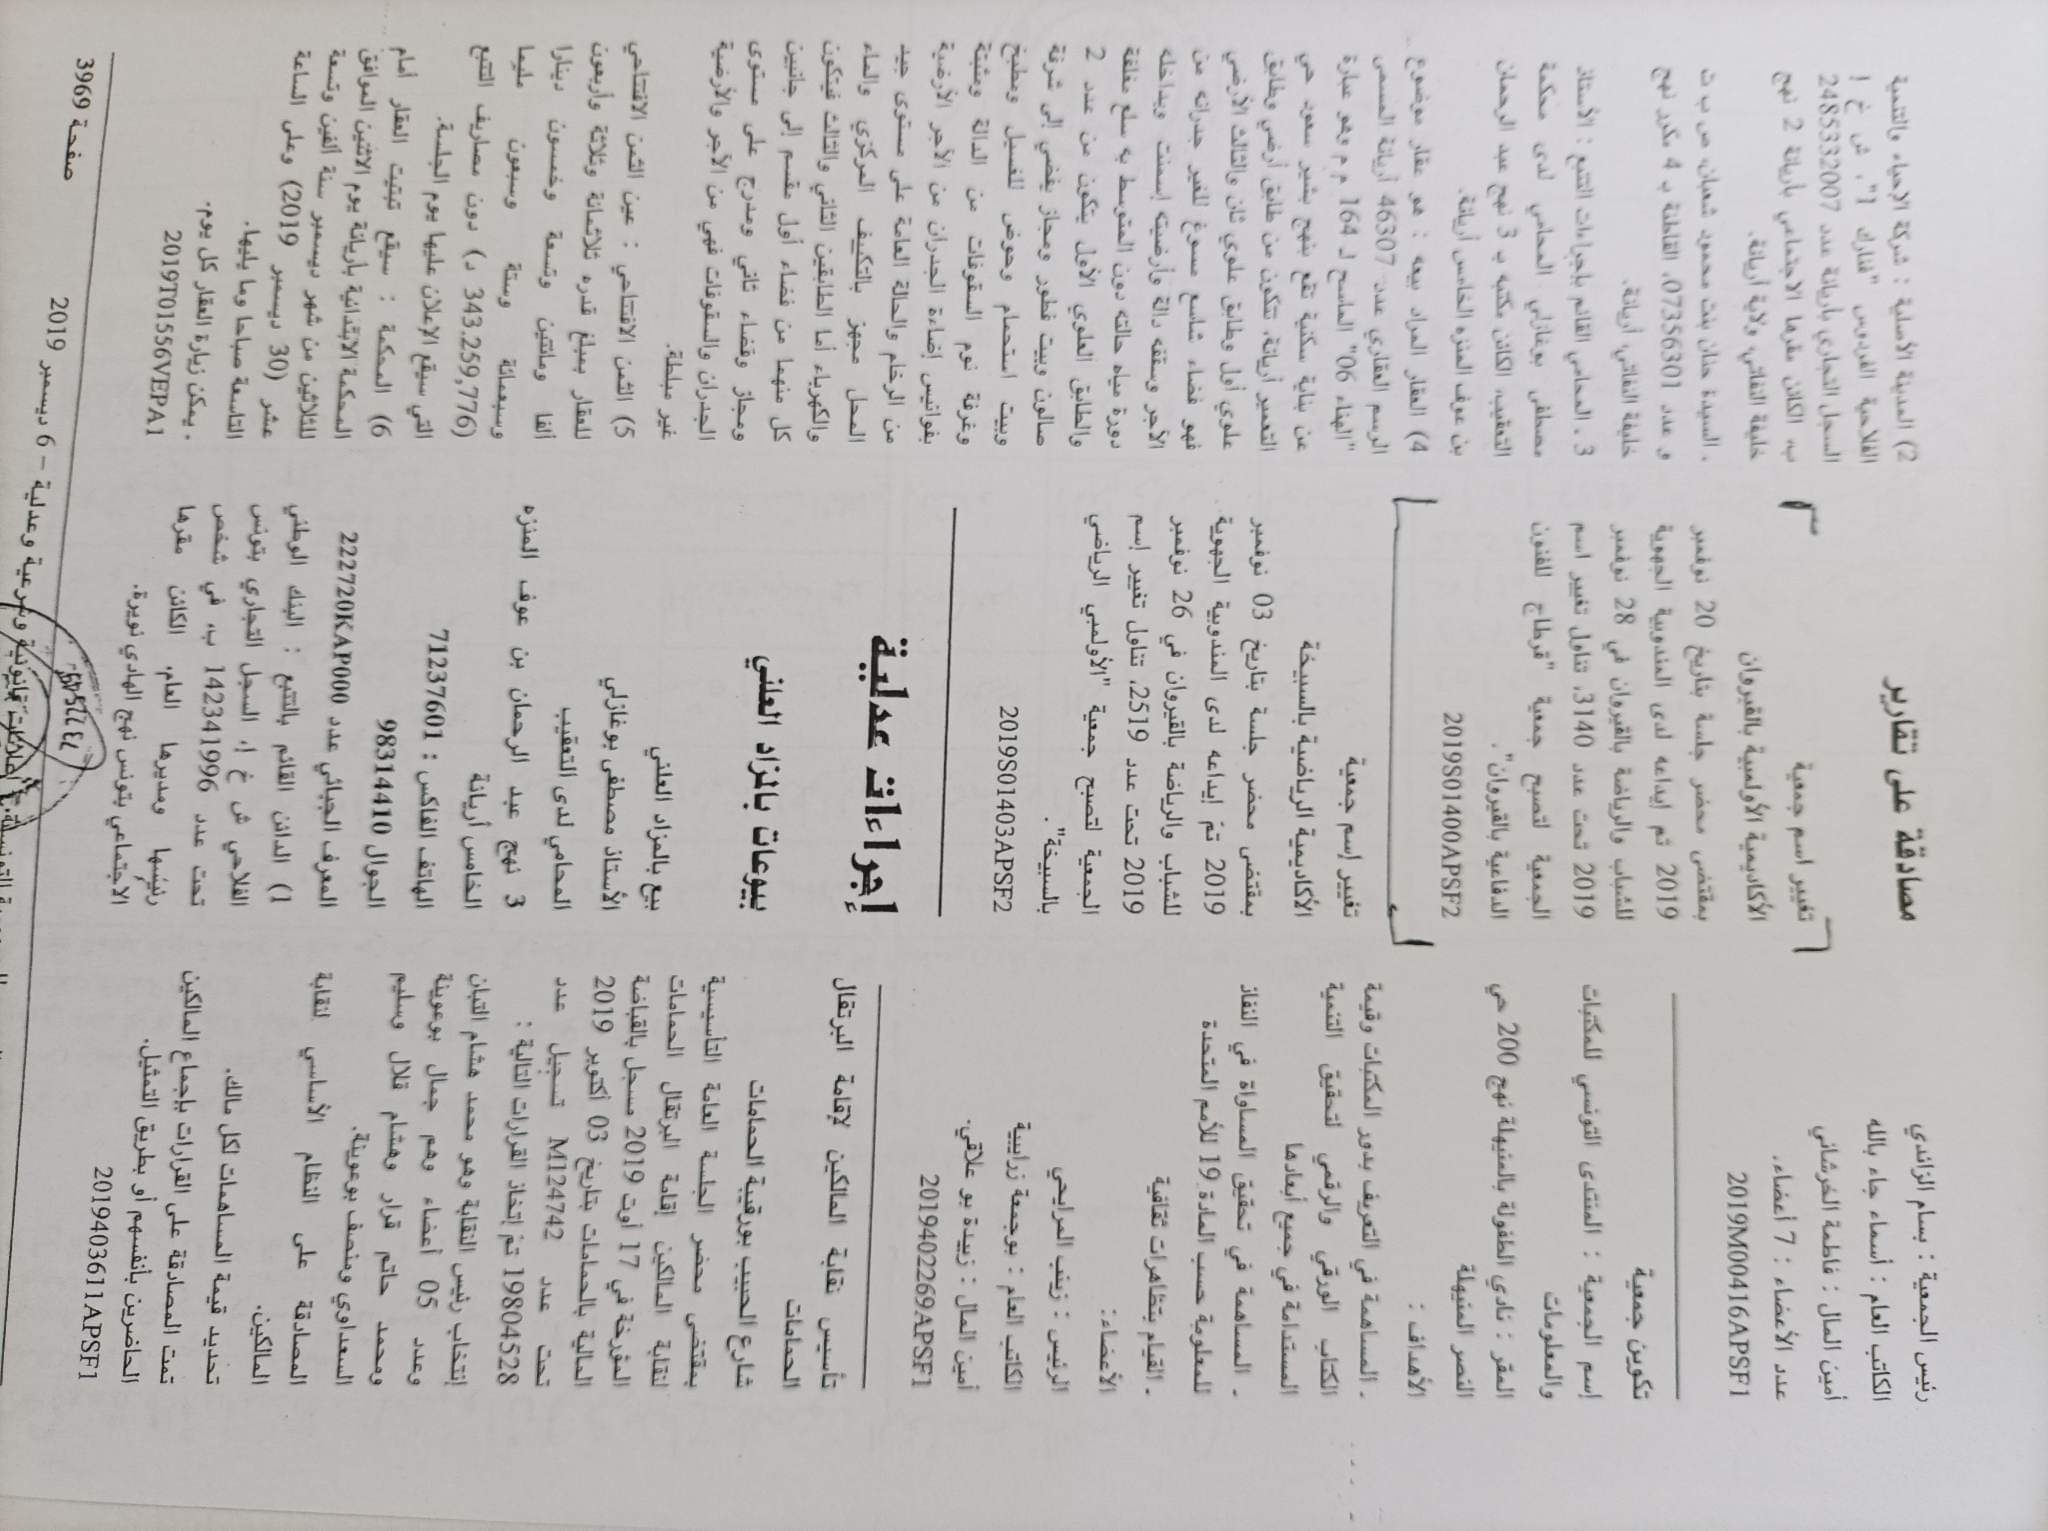 رئيس الجمعية : بسام الزائدي
الكاتب العام : أسماء جاء بالله
أمين المال : فاطمة الخرشاني
عدد الأعضاء : 7 أعضاء.
2019M00416APSF1
تكوين جمعية
إسم الجمعية : المنتدى التونسي للمكتبات
والمعلومات
المقر : نادي الطفولة بالمنيهلة نهج 200 حي
النصر المنيهلة
الأهداف :
ـ المساهمة في التعريف بدور المكتبات وقيمة
الكتاب الورقي والرقمي لتحقيق التنمية
المستدامة في جميع أبعادها
ـ المساهمة في تحقيق المساواة في النفاذ
للمعلومة حسب المادة 19 للأمم المتحدة
ـ القيام بتظاهرات ثقافية
الأعضاء:
الرئيس : زينب المرايحي
الكاتب العام : بوجمعة زرايبية
أمين المال : زبيدة بو علاقي.
2019402269APSF1
تأسيس نقابة المالكين لإقامة البرتقال
الحمامات
شارع الحبيب بورقيبة الحمامات
بمقتضى محضر الجلسة العامة التأسيسية
لنقابة المالكين إقامة البرتقال الحمامات
المؤرخة في 17 أوت 2019 مسجل بالقباضة
المالية بالحمامات بتاريخ 03 أكتوبر 2019
تحت عدد M124742 تسجيل عدد
19804528 تم إتخاذ القرارات التالية :
إنتخاب رئيس النقابة وهو محمد هشام التبان
وعدد 05 أعضاء وهم جمال بوعوينة
ومحمد حاتم قرار وهشام قلال وسليم
السعداوي ومنصف بوعوينة.
المصادقة على النظام الأساسي لنقابة
المالكين.
تحديد قيمة المساهمات لكل مالك.
تمت المصادقة على القرارات بإجماع المالكين
الحاضرين بأنفسهم أو بطريق التمثيل.
2019403611APSF1
مصادقة على تقارير
تغيير اسم جمعية
الأكاديمية الأولمبية بالقيروان
بمقتضى محضر جلسة بتاريخ 20 نوفمبر
2019 تم إيداعه لدى المندوبية الجهوية
للشباب والرياضة بالقيروان في 28 نوفمبر
2019 تحت عدد 3140، تناول تغيير اسم
الجمعية لتصبح جمعية "قرطاج للفنون
الدفاعية بالقيروان".
2019S01400APSF2
تغيير إسم جمعية
الأكاديمية الرياضية بالسبيخة
بمقتضى محضر جلسة بتاريخ 03 نوفمبر
2019 تم إيداعه لدى المندوبية الجهوية
للشباب والرياضة بالقيروان في 26 نوفمبر
2019 تحت عدد 2519، تناول تغيير إسم
الجمعية لتصبح جمعية "الأولمبي الرياضي
بالسبيخة".
2019S01403APSF2
إجراءات عدلية
بيوعات بالمزاد العلني
بيع بالمزاد العلني
الأستاذ مصطفى بوغازلي
المحامي لدى التعقيب
3 نهج عبد الرحمان بن عوف المنزه
الخامس أريانة
الهاتف الفاكس : 71237601
الجوال 98314410
المعرف الجبائي عدد 222720KAP000
1) الدائن القائم بالتتبع : البنك الوطني
الفلاحي ش خ إ، السجل التجاري بتونس
تحت عدد 142341996 ب، في شخص
رئيسها ومديرها العام، الكائن مقرها
الاجتماعي بتونس نهج الهادي نويرة.
2) المدينة الأصلية : شركة الإحياء والتنمية
الفلاحية الفردوس "فنارك 1"، ش خ إ
السجل التجاري بأريانة عدد 248532007
ب، الكائن مقرها الاجتماعي بأريانة 2 نهج
خليفة النفاتي، ولاية أريانة.
ـ السيدة حنان بنت محمود شعبان، ص ب ت
و عدد 07356301، القاطنة ب 4 مكرر نهج
خليفة النفاتي، أريانة.
3 ـ المحامي القائم بإجراءات التتبع : الأستاذ
مصطفى بوغازلي المحامي لدى محكمة
التعقيب، الكائن مكتبه ب 3 نهج عبد الرحمان
بن عوف المنزه الخامس أريانة.
4) العقار المراد بيعه : هو عقار موضوع
الرسم العقاري عدد 46307 أريانة المسمى
"الهناء 06" الماسح لـ 164 م م وهو عبارة
عن بناية سكنية تقع بنهج بشير سعود حي
التعمير أريانة، تتكون من طابق أرضي وطابق
علوي أول وطابق علوي ثان والثالث الأرضي
فهو فضاء شاسع مسوغ للغير جدرانه من
الأجر وسقفه دالة وأرضيته إسمنت وبداخله
دورة مياه حالته دون المتوسط به سلع مغلفة
والطابق العلوي الأول يتكون من عدد 2
صالون وبيت فطور ومجاز يفضي إلى شرفة
وبيت استحمام وحوض للغسيل ومطبخ
وغرفة نوم السقوفات من الدالة ومثبتة
بفوانيس إضاءة الجدران من الأجر الأرضية
من الرخام والحالة العامة على مستوى جيد
المحل مجهز بالتكييف المركزي والماء
والكهرباء أما الطابقين الثاني والثالث فيتكون
كل منهما من فضاء أول مقسم إلى جانبين
ومجاز وفضاء ثاني ومدرج على مستوى
الجدران والسقوفات فهي من الآجر والأرضية
غير مبلطة.
5) الثمن الافتتاحي : عين الثمن الافتتاحي
للعقار بمبلغ قدره ثلاثمائة وثلاثة وأربعون
ألفا ومائتين وتسعة وخمسون دينارا
وسبعمائة وستة وسبعون مليما
(343.259,776 د) دون مصاريف التتبع
التي سيقع الإعلان عليها يوم الجلسة.
6) المحكمة : سيقع تبتيت العقار أمام
المحكمة الابتدائية بأريانة يوم الاثنين الموافق
للثلاثين من شهر ديسمبر سنة ألفين وتسعة
عشر (30 ديسمبر 2019) وعلى الساعة
التاسعة صباحا وما يليها.
ـ يمكن زيارة العقار كل يوم.
2019T01556VEPA1
إعلانات قانونية وشرعية وعدلية – 6 ديسمبر 2019
صفحة 3969